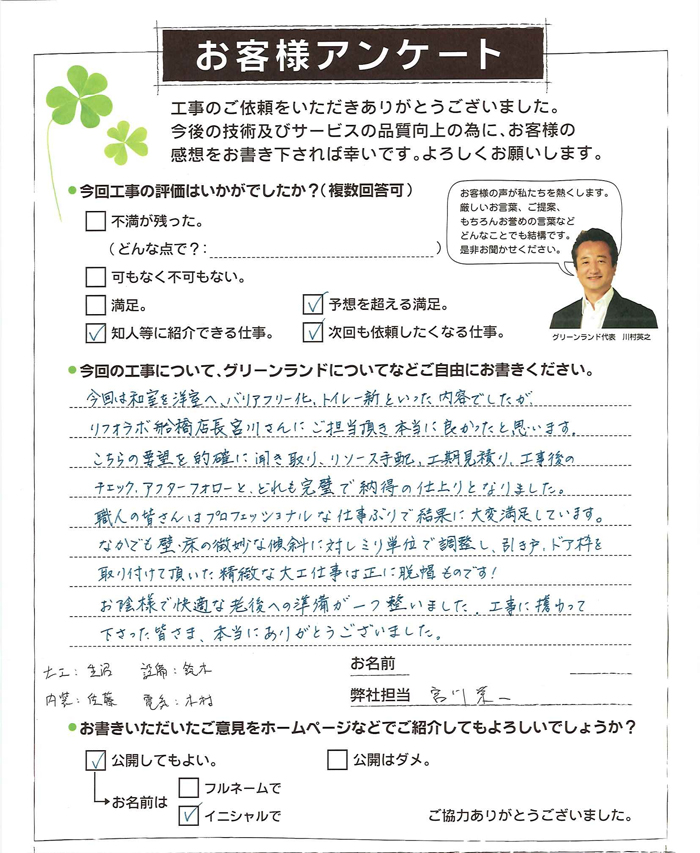 お客様アンケート
工事のご依頼をいただきありがとうございました。
今後の技術及びサービスの品質向上の為に、お客様の
感想をお書き下されば幸いです。よろしくお願いします。
●今回工事の評価はいかがでしたか?(複数回答可)
不満が残った。
(どんな点で?: )
可もなく不可もない。
満足。
予想を超える満足。
知人等に紹介できる仕事。
次回も依頼したくなる仕事。
お客様の声が私たちを熱くします。
厳しいお言葉、ご提案、
もちろんお誉めの言葉など
どんなことでも結構です。
是非お聞かせください。
グリーンランド代表 川村英之
●今回の工事について、グリーンランドについてなどご自由にお書きください。
今回は和室を洋室へ、バリアフリー化、トイレ一新といった内容でしたが
リフォラボ船橋店長宮川さんにご担当頂き本当に良かったと思います。
こちらの要望を的確に聞き取り、リソース手配、工期見積り、工事後の
チェック、アフターフォローと、どれも完璧で納得の仕上りとなりました。
職人の皆さんはプロフェッショナルな仕事ぶりで結果に大変満足しています。
なかでも壁・床の微妙な傾斜に対しミリ単位で調整し、引き戸、ドア枠を
取り付けて頂いた精緻な大工仕事は正に脱帽ものです!
お陰様で快適な老後への準備が一つ整いました。工事に携わって
下さった皆さま、本当にありがとうございました。
大工:生沼 設備:鈴木
内装:佐藤 電気:木村
お名前
弊社担当 宮川
●お書きいただいたご意見をホームページなどでご紹介してもよろしいでしょうか?
公開してもよい。
公開はダメ。
お名前は
フルネームで
イニシャルで
ご協力ありがとうございました。